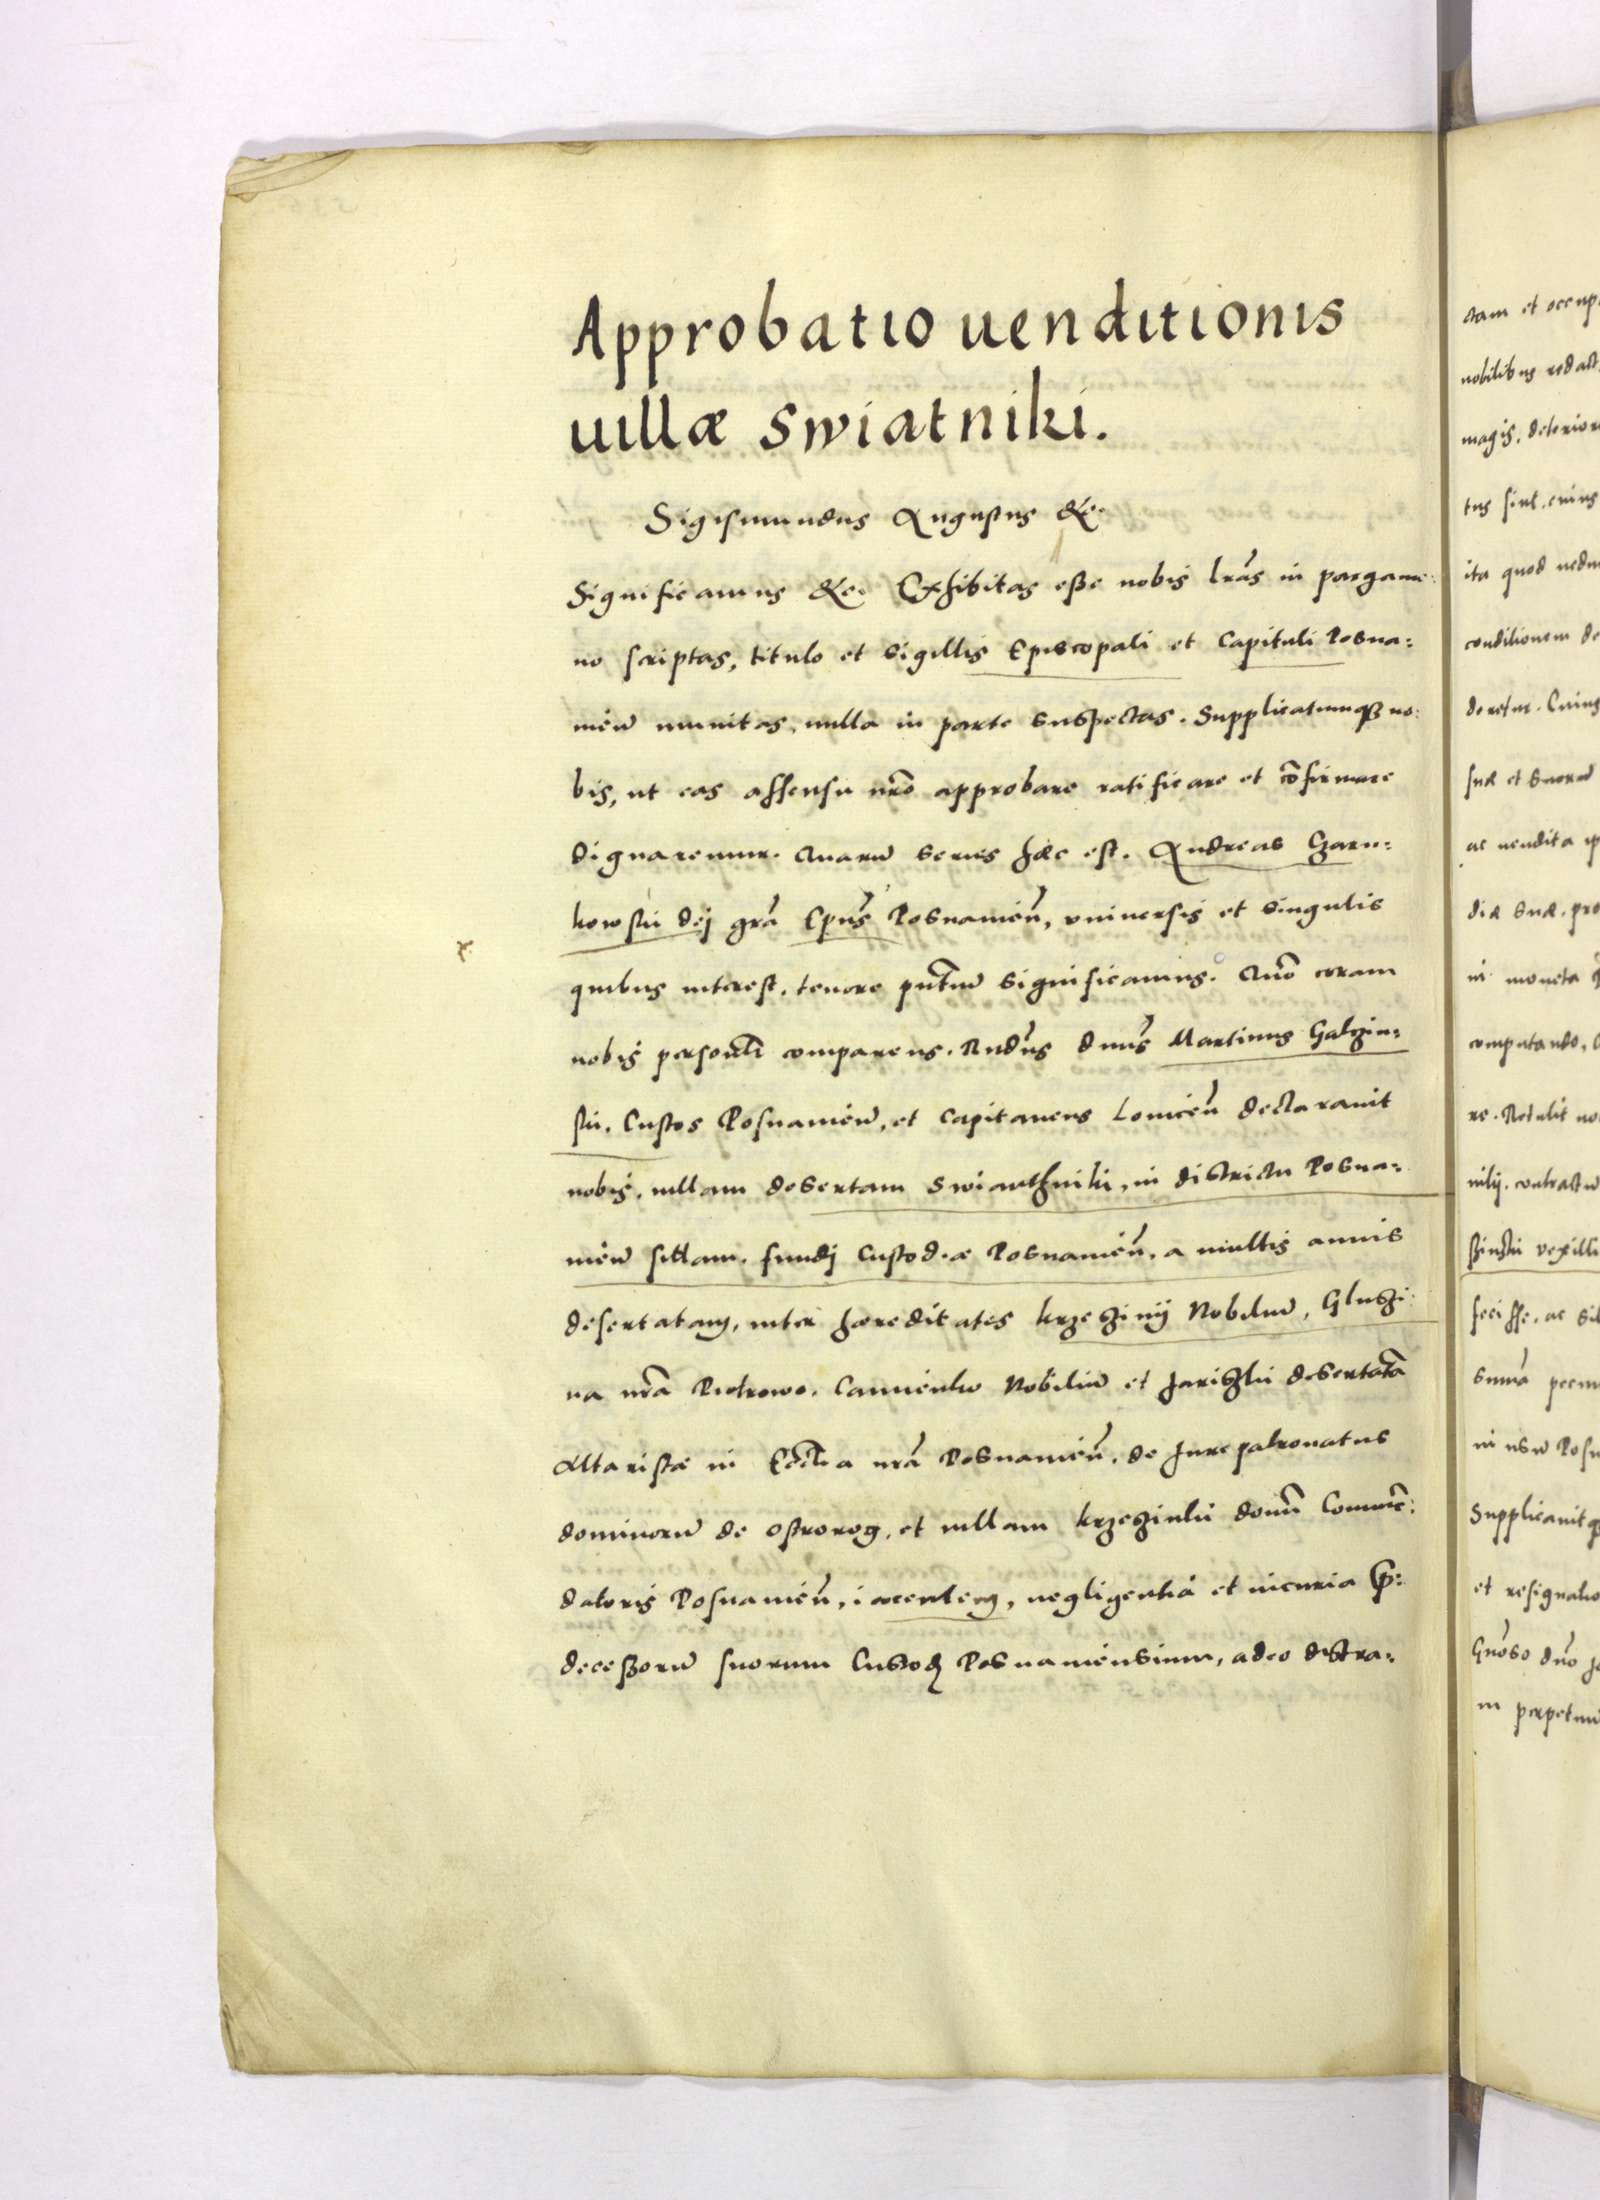 Approbatio uenditionis
uillæ Swiatniki.
Sigismundus Augustus &c.
Significamus &c. Exhibitas esse nobis lr̃as in pargame:
no scriptas, titulo et sigillis Episcopali et Capituli Posna:
nień munitas, nulla in parte suspectas. Supplicatumq; no:
bis, ut eas assensu nr̃o approbare ratificare et cõfirmare
dignaremur. Quarũ series hæc est. Andreas Czarn:
kowski dej gr̃a Ep̃us Posnanień, vniuersis et singulis
quibus interest, tenore pñtiũ significamus. Quõ coram
nobis personl̃r comparens. Rñdus dñus Martinus Galczin:
ski. Custos Posnanień, et Capitaneus Louicień declarauit
nobis, uillam desertam Swianthniki, in districtu Posna:
nień sitam. fundj Custodiæ Posnanień, a multis annis
desertatam, inter hæreditates krzeszinij Nobiliũ, Gluszi:
na nr̃a Piotrowo. Camienko Nobiliũ et Jariszki desertatã
Altaristæ in Eccl̃ia nr̃a Posnanień. de Jurepatronatus
dominorũ de ostrorog, et uillam krzeszinki domũ Commẽ:
datoris Posnanień, iacentem, negligentia et incuria p̃:
decessorũ suorum Custodũ Posnaniensium, adeo distra:
ctam et occup
nobilibus redact
magis. deterior
tus sint, cuius
ita quod nedu
conditionem de
deretur. Cuius
suæ et suorũ
ac uendita ip
diæ suæ. pro
in moneta
computando,
re. Retulit no
nilij. contractũ
vexilli
fecisse, ac
sumã pecu
in usũ Posn
Supplicauitq;
et resignatio
Gñoso dño
in perpetuũ